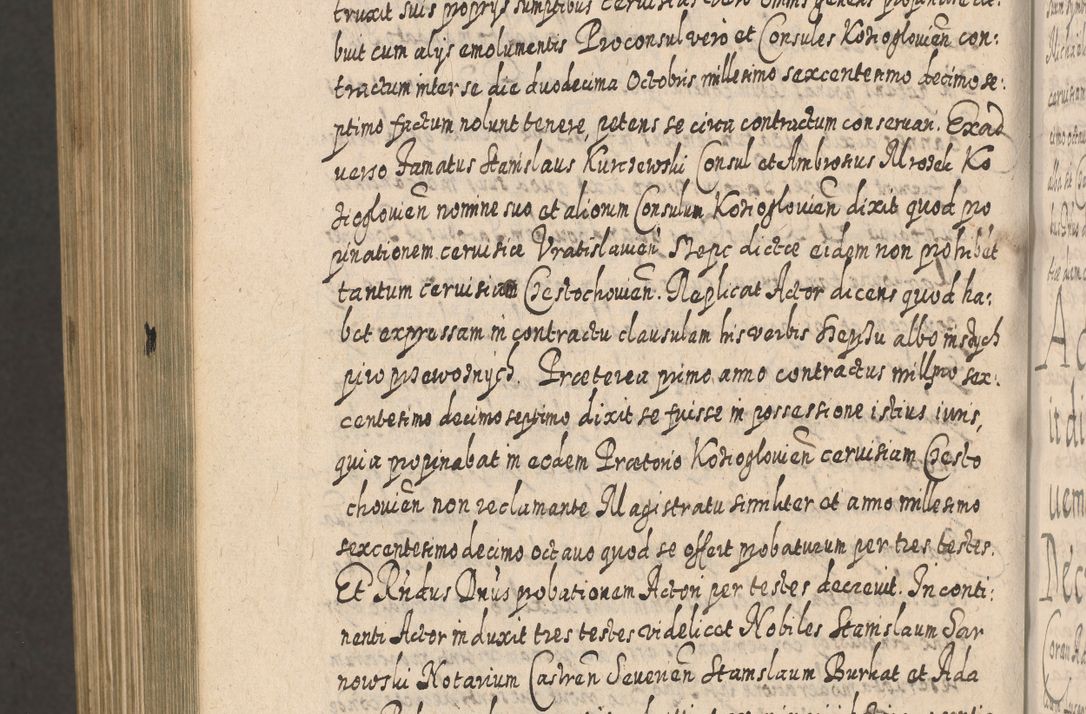 truxit suis proprijs sumptibus cervisias vero omnis generis propinare de:
buit cum alijs emolumentis Proconsul vero et Consules Kozioglovien̄ con:
tractum inter se die duodecima Octobris millesimo sexcentesimo decimo se:
ptimo factum nolunt tenere, petens se circa contractum conservari. Ex ad
verso Famatus Stanislaus Kurczewski Consul et Ambrosius Mrozek Ko
zioglovien̄ nomine suo et aliorum Consulum Kozioglovien̄ dixit quod pro
pinationem cervisiæ Vratislavien̄ Siepc dictæ eidem non prohibet
tantum cervisiam Czestochovien̄. Replicat Actor dicens quod ha:
bet expressam in contractu clausulam his verbis Szepsu albo inszych
piw przewoznych. Præterea primo anno contractus millmo sex:
centesimo decimo septimo dixit se fuisse in possessione istius iuris,
quia propinabat in eodem Prætorio Kozioglovien̄ cervisiam Czesto
chovien̄ non reclamante Magistratu similiter et anno millesimo
sexcentesimo decimo octavo quod se offert probaturum per tres testes.
Et Rndus Dnus probationem Actori per testes decrevit. In conti:
nenti Actor induxit tres testes videlicet Nobiles Stanislaum Sar
nowski Notarium Castren̄ Severien̄ Stanislaum Burkat et Ada